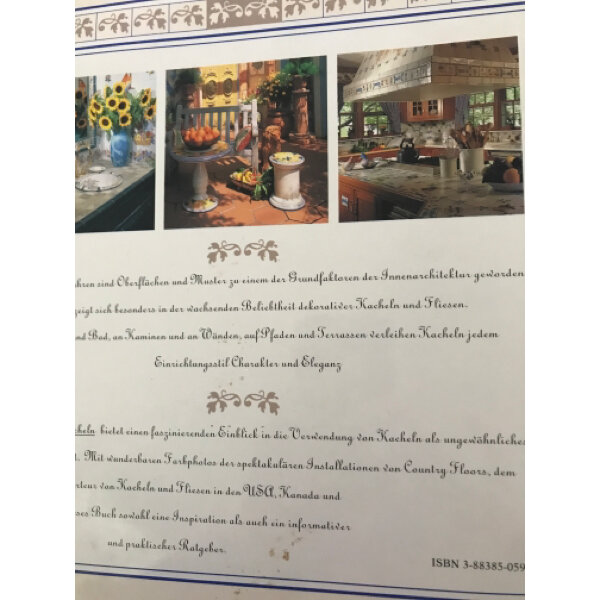 ahren sind Oberflächen und Muster zu einem der Grundfaktoren der Innenarchitektur geworden
zeigt sich besonders in der wachsenden Beliebtheit dekorativer Kacheln und Fliesen.
nd Bad, an Kaminen und an Wänden, auf Pfaden und Terrassen verleihen Kacheln jedem
Einrichtungsstil Charakter und Eleganz
acheln bietet einen faszinierenden Einblick in die Verwendung von Kacheln als ungewöhnliches
t. Mit wunderbaren Farbphotos der spektakulären Installationen von Country Floors, dem
rteur von Kacheln und Fliesen in den USA, Kanada und
ses Buch sowohl eine Inspiration als auch ein informativer
und praktischer Ratgeber.
ISBN 3-88385-059